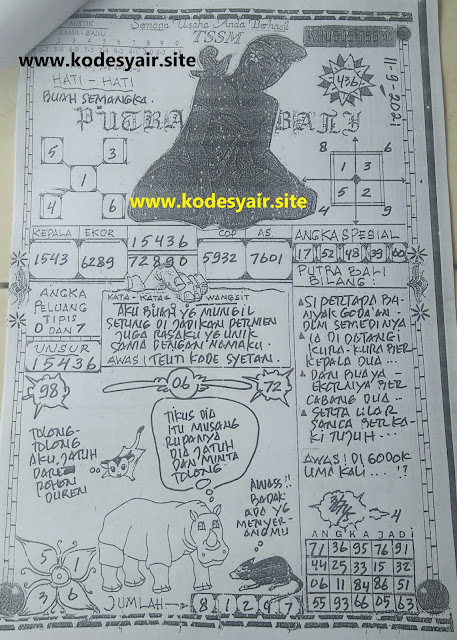 MISTIK
Semoga Usaha Anda Berhasil
TSSM
LAMA - BARU
www.kodesyair.site
HATI - HATI
BUAH SEMANGKA.
436
11-9-2021
PUTRA BALI
5 3
1
4 6
8 6
1 3
5 2
4 9
www.kodesyair.site
KEPALA EKOR
1543 6289
15436
72890
COP AS
5932 7601
ANGKA SPESIAL
17 52 48 39 60
PUTRA BALI
BILANG:
ANGKA
PELUANG
TIPIS
0 DAN 7
UNSUR
15436
KATA - KATA WANGSIT
AKU BUAH YG MUNGIL
SETUNG DI JADIKAN PERMEN
JUGA RASAKU YG UNIK
SAMA DENGAN NAMAKU.
AWAS! TELITI KODE SYETAN.
SI PERTAPA BA-
NYAK GODA'AN-
DLM SEMEDINYA
IA DI DATANGI
KURA-KURA BER-
KEPALA DUA...
DAN BUAYA -
EKORNYA BER
CABANG DUA...
SERTA ULAR
SANCA BERKA-
KI TUJUH...
AWAS! DI GOOOK
UMA KALI... !?
98
06
72
TOLONG-
TOLONG
AKU JATUH
DARE
POHON
DUREN
TIKUS DIA
ITU MUSANG
RUPANYA
DIA JATUH
DAN MINTA
TOLONG.
AWASS!!
BADAK
ADA YG
MENYER-
ANGMU
4
ANGKA JADI
71 36 95 76 91
44 25 33 15 32
06 11 84 86 51
55 93 66 05 63
5 1
3 6
JUMLAH → 8 1 2 9 7